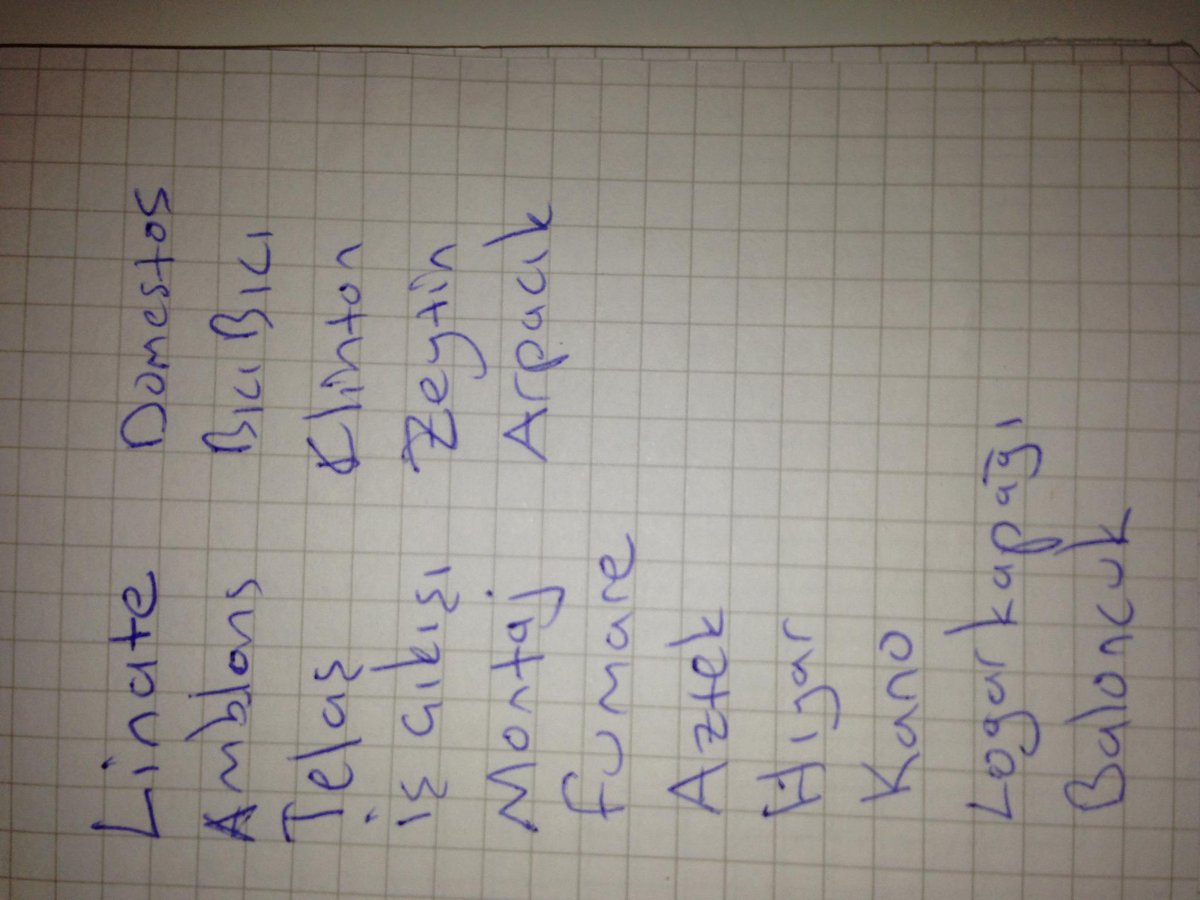 Linate
Amblans
Telaş
iş çıkışı
Montaj
fumare
Aztek
Hıyar
Kano
Logar kapağı
Baloncuk
Domestos
Bıcı Bıcı
Klinton
Zeytin
Arpacık